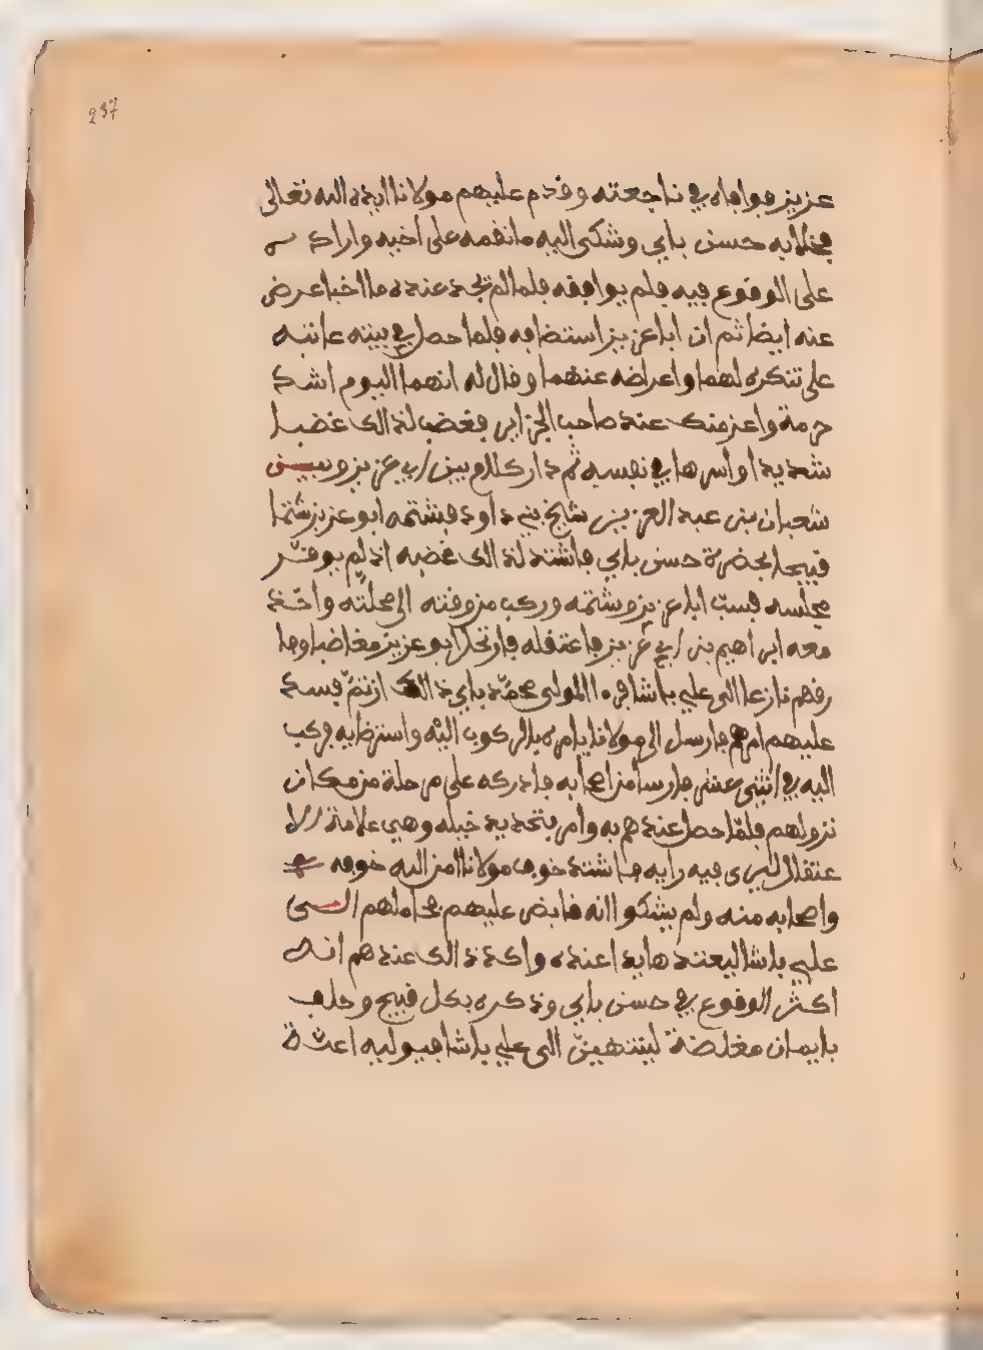 237
عزيز فوافاه في ناجعته وقدم عليهم مولانا ايده الله تعالى
حسن باي وشكى اليه ما نقمه على اخيه واراد
على الوقوع فيه فلم يوافقه فلما لم يجد عنده ما احب اعرض
عنه ايضا ثم ان ابا عزيز استضافه فلما حصل في بيته عاتبه
على تنكره لهما واعراضه عنهما وقال له انهما اليوم اشد
حرمة واعز منك عند صاحب الجزاير فغضب لذالك غضبا
شديدا واسرها في نفسه ثم دار كلام بين ابي عزيز وبين
شعبان بن عبد العزيز شيخ بني داود فشتمه ابو عزيز شتما
قبيحا بحضرة حسن باي فاشتد لذالك غضبه اذ لم يوقر
مجلسه فسب ابا عزيز وشتمه وركب من وقته الى محلته واخذ
معه ابراهيم بن ابي عزيز فاعتقله فارتحل ابو عزيز مغاضبا وفا
رقهم نازعا الى علي باشا فر المولى محمد باي ذالك ان تم فسد
عليهم امرهم فارسل الى مولانا يامره بالركوب اليه واسترضايه فركب
اليه في اثنى عشر فارسا من اصحابه فادركه على مرحلة من مكان
نزولهم فلما حصل عنده هم به وامر بتحديد خيله وهي علامة الا
عتقال ليرى فيه رايه فاشتد خوف مولانا امن الله خوفه
واصحابه منه ولم يشكوا انه قابض عليهم حاملهم الى
علي باشا ليعتدها يدا عنده واكد ذالك عندهم انه
اكثر الوقوع في حسن باي وذكره بكل قبيح وحلف
بايمان مغلضة لينتهين الى علي باشا فيوليه اعنة